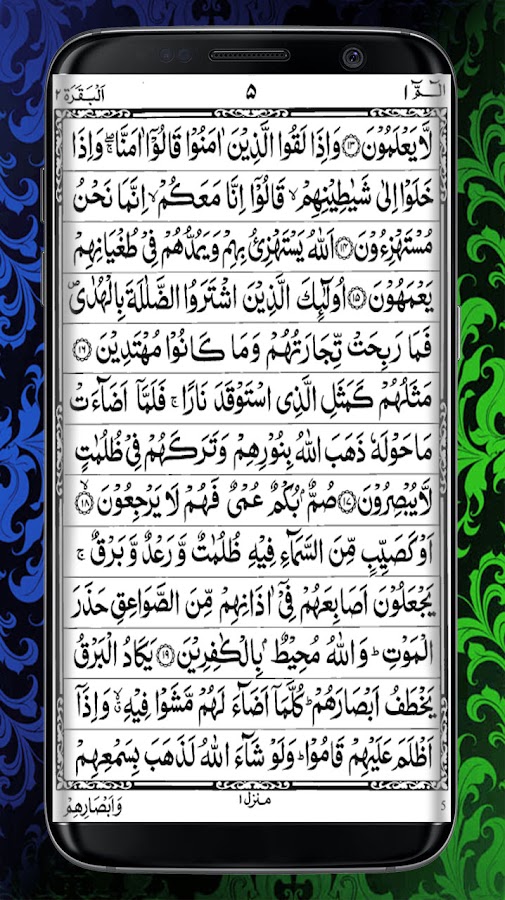 الٓمّٓ ١ ۵ اَلْبَقَرَة ٢
لَّا يَعْلَمُوْنَ ۝۱۳ وَاِذَا لَقُوا الَّذِيْنَ اٰمَنُوْا قَالُوْٓا اٰمَنَّا ۚۖ وَاِذَا
خَلَوْا اِلٰى شَيٰطِيْنِهِمْ ۙ قَالُوْٓا اِنَّا مَعَكُمْ ۙ اِنَّمَا نَحْنُ
مُسْتَهْزِءُوْنَ ۝۱۴ اَللّٰهُ يَسْتَهْزِئُ بِهِمْ وَيَمُدُّهُمْ فِيْ طُغْيَانِهِمْ
يَعْمَهُوْنَ ۝۱۵ اُولٰٓئِكَ الَّذِيْنَ اشْتَرَوُا الضَّلٰلَةَ بِالْهُدٰى ۪
فَمَا رَبِحَتْ تِّجَارَتُهُمْ وَمَا كَانُوْا مُهْتَدِيْنَ ۝۱۶
مَثَلُهُمْ كَمَثَلِ الَّذِي اسْتَوْقَدَ نَارًا ۚ فَلَمَّآ اَضَآءَتْ
مَا حَوْلَهٗ ذَهَبَ اللّٰهُ بِنُوْرِهِمْ وَتَرَكَهُمْ فِيْ ظُلُمٰتٍ
لَّا يُبْصِرُوْنَ ۝۱۷ صُمٌّۢ بُكْمٌ عُمْيٌ فَهُمْ لَا يَرْجِعُوْنَ ۝۱۸ۙ
اَوْ كَصَيِّبٍ مِّنَ السَّمَآءِ فِيْهِ ظُلُمٰتٌ وَّرَعْدٌ وَّبَرْقٌ ۚ
يَجْعَلُوْنَ اَصَابِعَهُمْ فِيْٓ اٰذَانِهِمْ مِّنَ الصَّوَاعِقِ حَذَرَ
الْمَوْتِ ؕ وَاللّٰهُ مُحِيْطٌۢ بِالْكٰفِرِيْنَ ۝۱۹ يَكَادُ الْبَرْقُ
يَخْطَفُ اَبْصَارَهُمْ ؕ كُلَّمَآ اَضَآءَ لَهُمْ مَّشَوْا فِيْهِ ۙ وَاِذَآ
اَظْلَمَ عَلَيْهِمْ قَامُوْا ؕ وَلَوْ شَآءَ اللّٰهُ لَذَهَبَ بِسَمْعِهِمْ
منزل ١
وَاَبْصَارِهِمْ
5